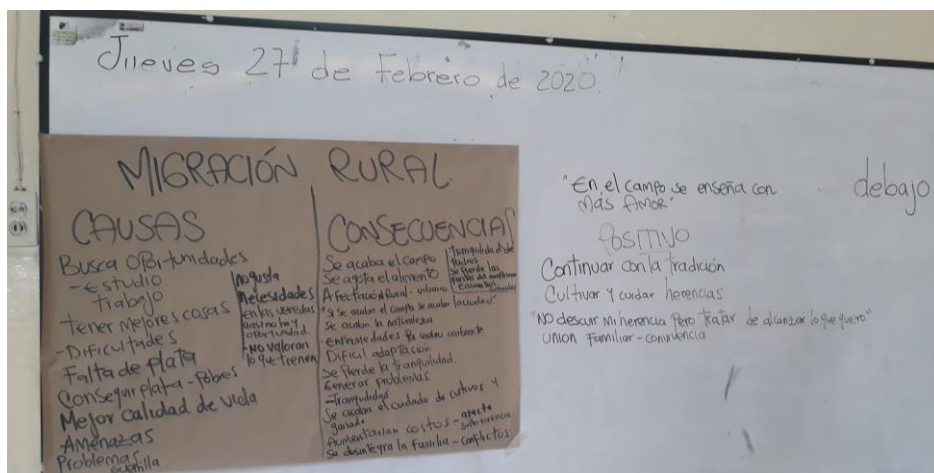 Jueves 27 de Febrero de 2020.
MIGRACIÓN RURAL
CAUSAS
Busca Oportunidades
-Estudio
Trabajo
Tener Mejores cosas
-Dificultades
Falta de plata
Conseguir plata - Pobes
Mejor calidad de vida
Amenazas
Problemas
guerrilla
no gusta
Necesidades
en las veredas
casi no hay
oportunidad.
-No valoran
lo que tienen
CONSECUENCIAS
Se acaba el campo
Se agota el alimento
Afectación Rural - urbano
"Si se acaba el campo se acaba la ciudad"
Se acaba la naturaleza
-Enfermedades ambiente
Dificil adaptación
Se Pierde la tranquilidad.
Generar problemas
-Tranquilidad
Se acaba el cuidado de cultivos y
ganado.
Aumentarian costos - afecta
Se desintegra la familia - conflictos
Tranquilidad de
Padres
Se Pierde las
"En el campo se enseña con
Más Amor"
debajo
POSITIVO
Continuar con la tradición
Cultivar y cuidar herencias
"NO descuir mi herencia Pero tratar de alcanzar lo que quero"
Union Familiar - convivencia